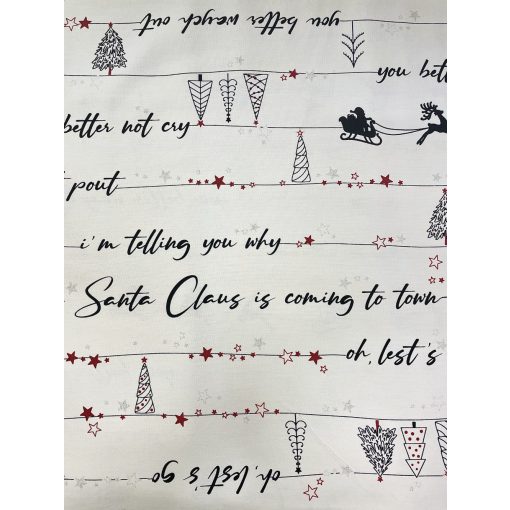 you better waych out
you bett
better not cry
t pout
i'm telling you why
Santa Claus is coming to town
oh, lest's
oh, lest's go